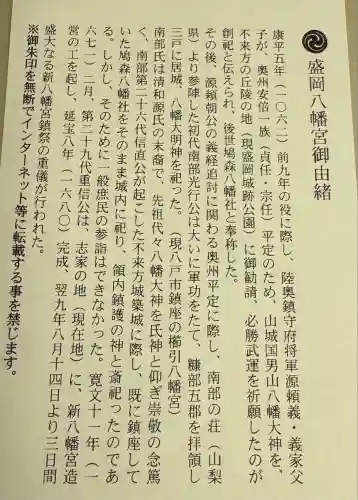 盛岡八幡宮御由緒
康平五年(一〇六二)前九年の役に際し、陸奥鎮守府将軍源頼義・義家父
子が、奥州安倍一族(貞任・宗任)平定のため、山城国男山八幡大神を、
不来方の丘陵の地(現盛岡城跡公園)に御勧請、必勝武運を祈願したのが
創祀と伝えられ、後世鳩森八幡社と奉称した。
その後、源頼朝公の義経追討に関わる奥州平定に際し、南部の荘(山梨
県)より参陣した初代南部光行公は大いに軍功をたて、糠部五郡を拝領し
三戸に居城、八幡大明神を祀った。(現八戸市鎮座の櫛引八幡宮)
南部氏は清和源氏の末裔で、先祖代々八幡大神を氏神と仰ぎ崇敬の念篤
く、南部第二十六代信直公が起こした不来方城築城に際し、既に鎮座して
いた鳩森八幡社をそのまま城内に祀り、領内鎮護の神と斎祀ったのであ
る。しかし、そのために一般庶民の参詣はできなかった。寛文十一年(一
六七一)二月、第二十九代重信公は、志家の地(現在地)に、新八幡宮造
営の工を起し、延宝八年(一六八〇)完成、翌九年八月十四日より三日間
盛大なる新八幡宮鎮祭の重儀が行われた。
※御朱印を無断でインターネット等に転載する事を禁じます。